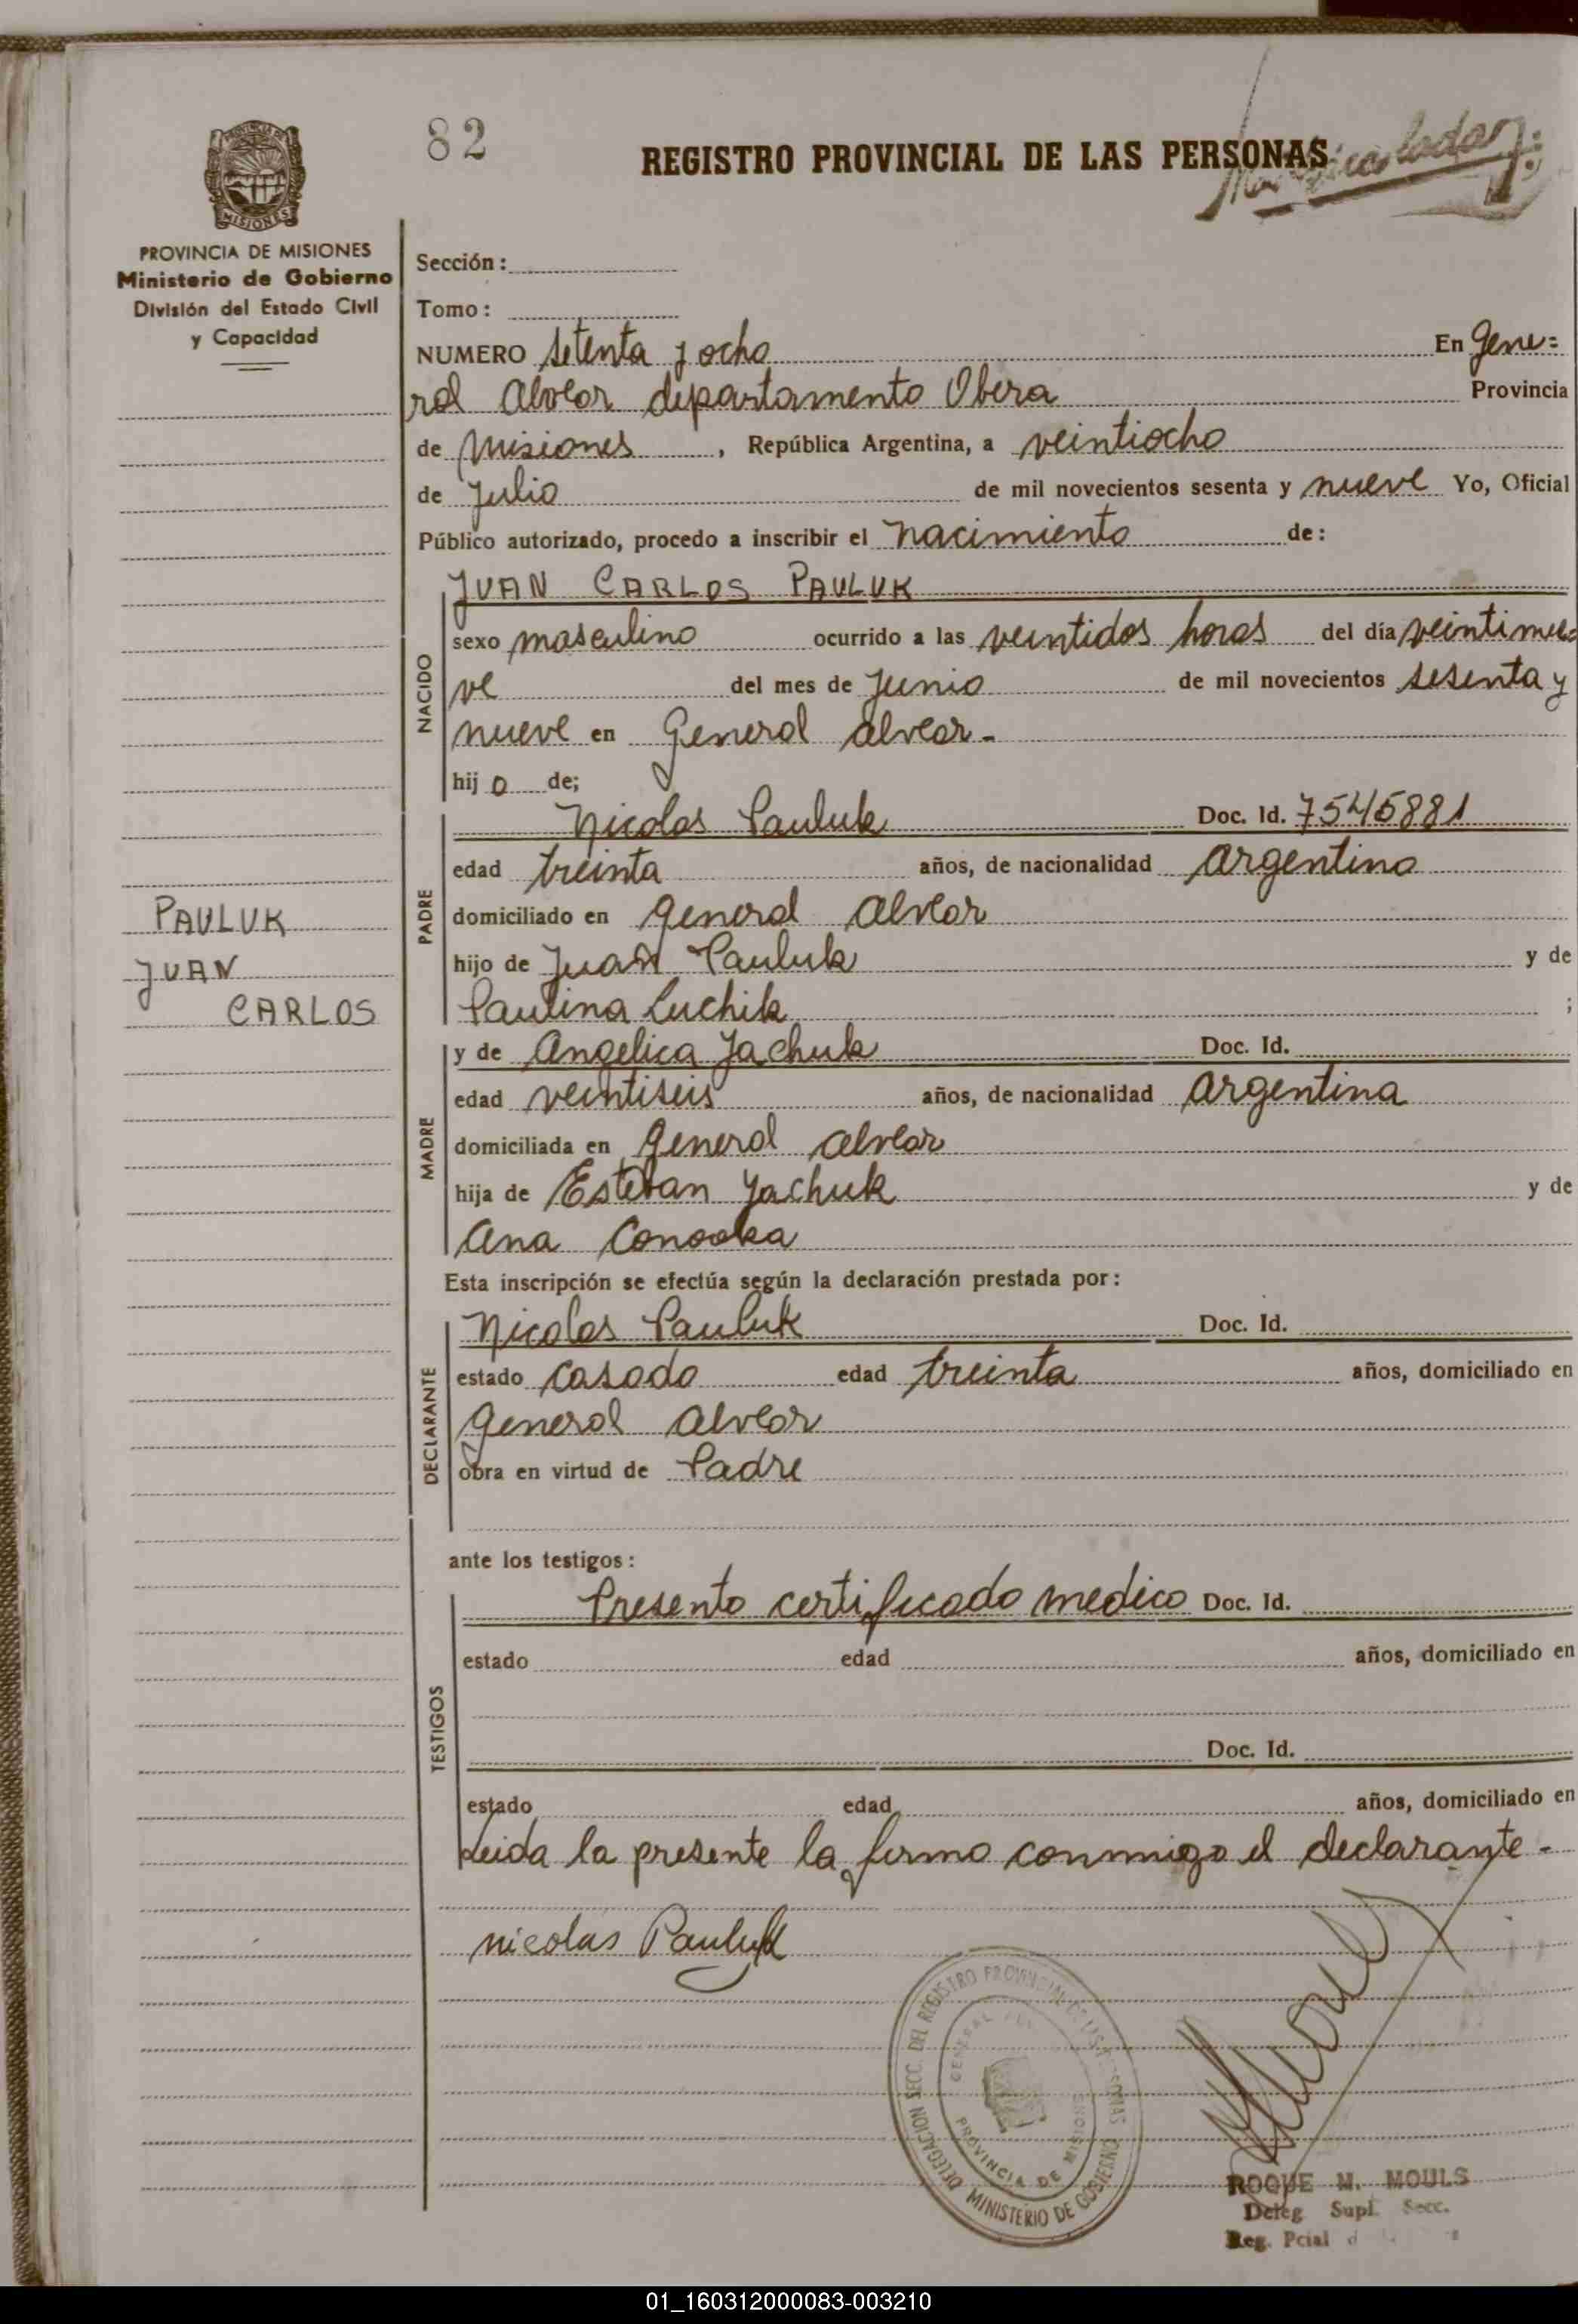 82
REGISTRO PROVINCIAL DE LAS PERSONAS
PROVINCIA DE
MISIONES
PROVINCIA DE MISIONES
Ministerio de Gobierno
División del Estado Civil
y Capacidad
Sección:
Tomo:
NUMERO setenta y ocho En Gene=
ral Alvear departamento Obera Provincia
de Misiones, República Argentina, a veintiocho
de Julio de mil novecientos sesenta y nueve Yo, Oficial
Público autorizado, procedo a inscribir el nacimiento de:
JUAN CARLOS PAULUK
NACIDO
sexo masculino ocurrido a las veintidos horas del día veintinue
ve del mes de Junio de mil novecientos sesenta y
nueve en General Alvear.-
hijo de;
PADRE
Nicolas Pauluk Doc. Id. 7545881
edad treinta años, de nacionalidad Argentino
domiciliado en General Alvear
PAULUK
JUAN
CARLOS
hijo de Juan Pauluk y de
Paulina Luchik ;
MADRE
y de Angelica Jachuk Doc. Id.
edad veintiseis años, de nacionalidad Argentina
domiciliada en General Alvear
hija de Esteban Yachuk y de
Ana
Esta inscripción se efectúa según la declaración prestada por:
DECLARANTE
Nicolas Pauluk Doc. Id.
estado casado edad treinta años, domiciliado en
General Alvear
obra en virtud de Padre
ante los testigos:
TESTIGOS
Presento certificado medico Doc. Id.
estado edad años, domiciliado en
Doc. Id.
estado edad años, domiciliado en
Leida la presente la firma conmigo el declarante.-
nicolas Pauluk
DELEGACION SECC. DEL REGISTRO PROVINCIAL DE LAS PERSONAS
MINISTERIO DE GOBIERNO
GENERAL
PROVINCIA DE MISIONES
ROQUE M. MOULS
Deleg Supl. Secc.
Reg. Pcial
01_160312000083-003210